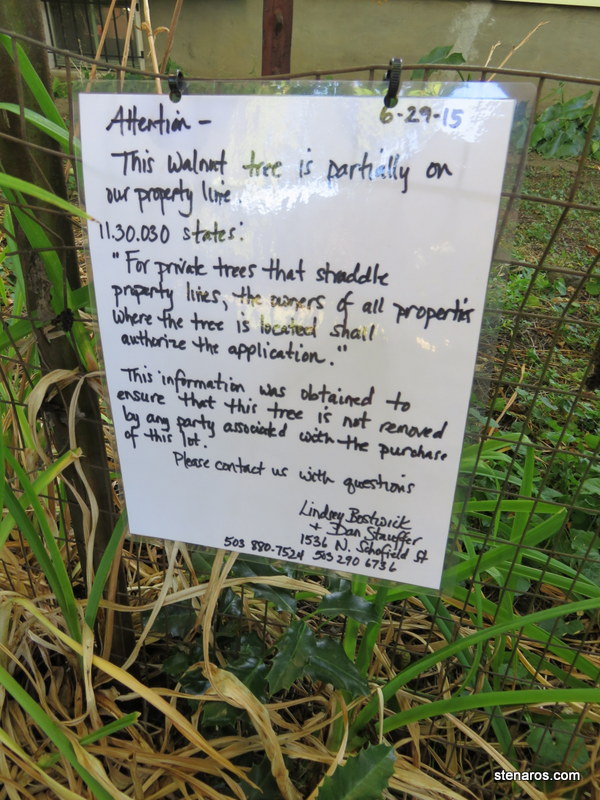 Attention - 6-29-15
This walnut tree is partially on
our property line.
11.30.030 states:
"For private trees that straddle
property lives, the owners of all properties
where the tree is located shall
authorize the application."
This information was obtained to
ensure that this tree is not removed
by any party associated with the purchase
of this lot.
Please contact us with questions
Lindsey Bostwick
+ Dan Stauffer
1536 N. Schofield St
503 880-7524 503 290 6736
stenaros.com